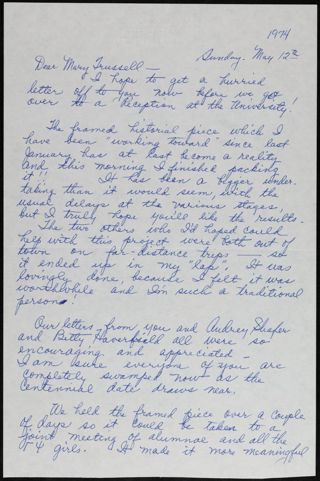 1974
Sunday. May 12th
Dear Mary Trussell —
I hope to get a hurried
letter off to you now before we go
over to a reception at the University!
The framed historial piece which I
have been "working toward" since last
January has at last become a reality
and this morning I finished packing
it!! It has been a bigger under-
taking than it would seem, with the
usual delays at the various stages
but I truly hope you'll like the results.
The two others who I'd hoped could
help with this project were both out of
town on far-distance trips — so
it ended up in my "lap". It was
lovingly done, because I felt it was
worthwhile and I'm such a traditional
person!
Our letters from you and Audrey Shafer
and Betty Haverfield all were so
encouraging and appreciated —
I am sure everyone of you are
completely swamped now as the
Centennial date draws near.
We held the framed piece over a couple
of days so it could be taken to a
joint meeting of alumnae and all the
girls. It made it more meaningful